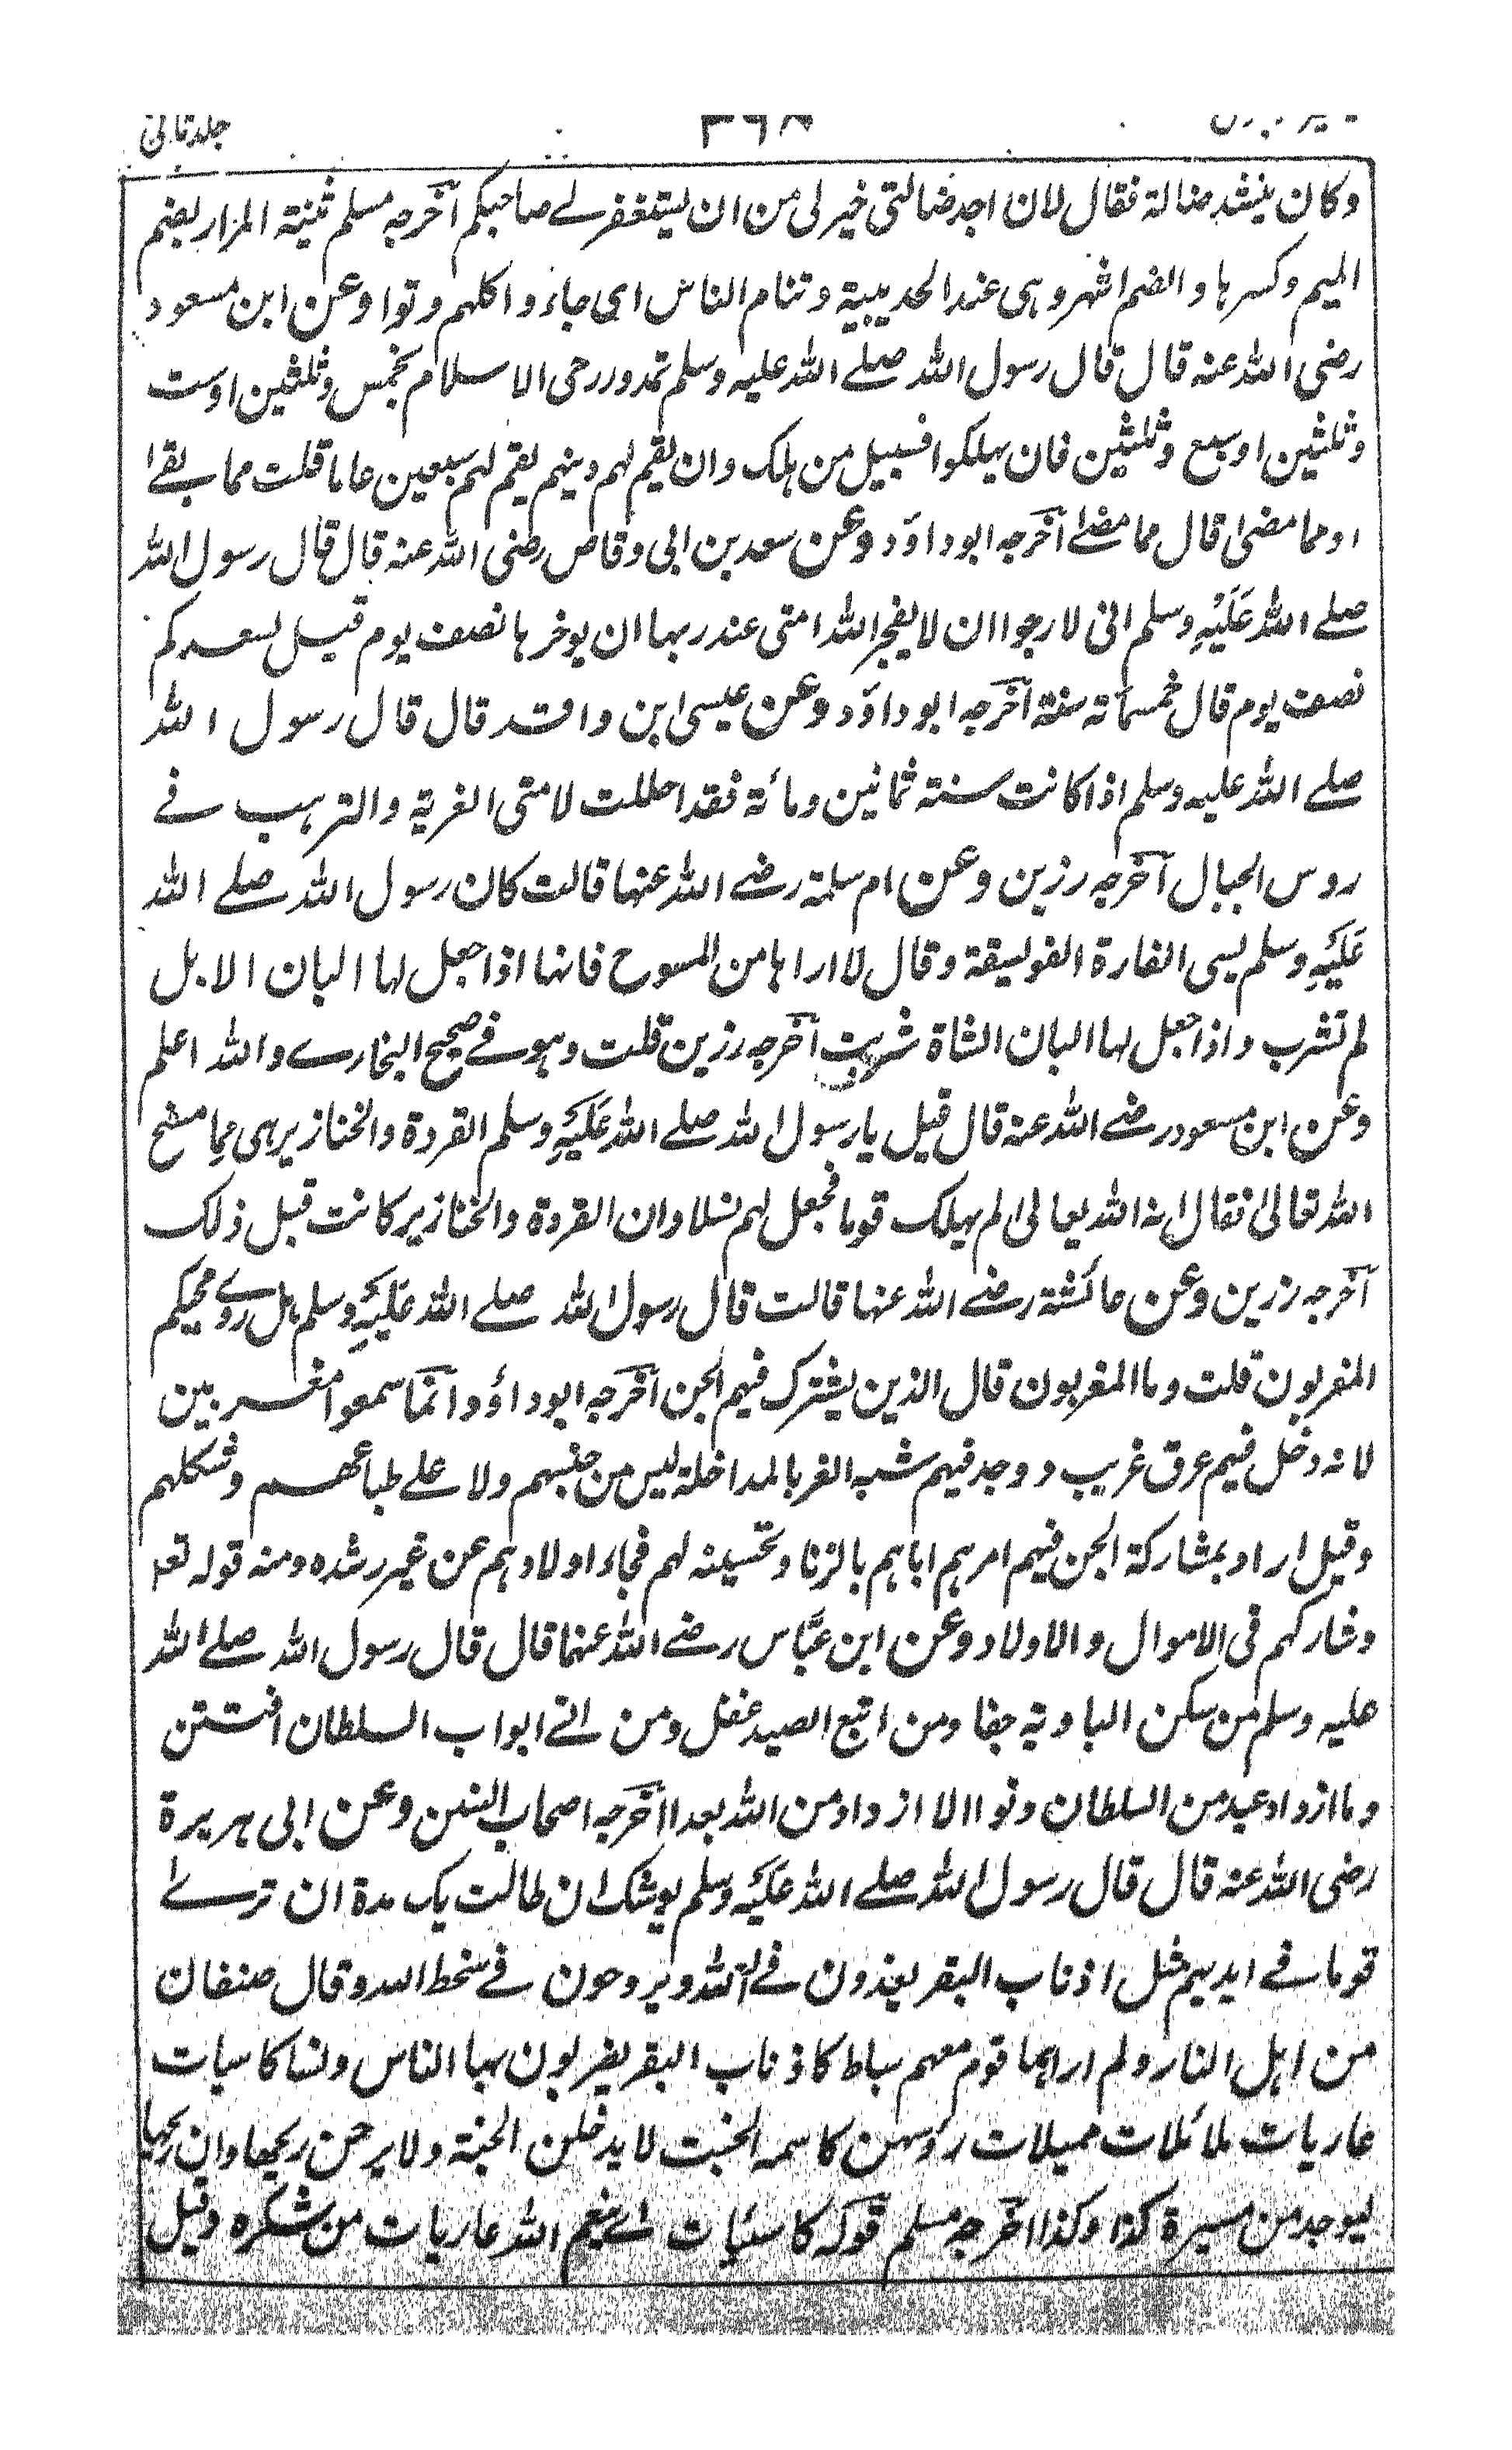 جلد ثانی ٣٦٨
وکان ینشد ضالة فقال لان اجد ضالتی خیر لی من ان یستغفر لے صاحبکم آخرجه مسلم ثنیة المزار بضم
المیم وکسرها والضم اشهر وهی عند الحدیبیة وتنام الناس ای جاءوا کلهم وتوا وعن ابن مسعود
رضی الله عنه قال قال رسول الله صلے الله علیه وسلم تمدور رحی الاسلام بخمس وثلثین اوست
وثلثین اوسبع وثلثین فان یهلکوا فسبیل من هلک وان یقم لهم دینهم یقم لهم سبعین عاما قلت مما بقے ا
اومما مضی قال مما مضے آخرجه ابوداؤد وعن سعد بن ابی وقاص رضی الله عنه قال قال رسول الله
صلے الله عَلَیْهِ وسلم انی لارجوا ان لا یفجر الله امتی عند ربها ان یوخرها نصف یوم قیل لسعد کم
نصف یوم قال خمسمائة سنة آخرجه ابوداؤد وعن عیسی ابن واقد قال قال رسول الله
صلے الله علیه وسلم اذا کانت سنة ثمانین ومائة فقد احللت لامتی الغربة والترهب فے
روس الجبال آخرجه رزین وعن ام سلمة رضے الله عنها قالت کان رسول الله صلے الله
عَلَیْهِ وسلم یسمی الفارة الفویسقة وقال لا اراها من المسوح فانها اذا جعل لها البان الابل
لم تشرب واذا جعل لها البان الشاة شربت آخرجه رزین قلت وهو فے صحیح البخارے والله اعلم
وعن ابن مسعود رضے الله عنه قال قیل یا رسول الله صلے الله عَلَیْهِ وسلم القردة والخنازیر هی مما مسخ
الله تعالیٰ فقال ان الله تعالی لم یهلک قوما فجعل لهم نسلا وان القردة والخنازیر کانت قبل ذلک
آخرجه رزین وعن عائشة رضے الله عنها قالت قال رسول الله صلے الله عَلَیْهِ وسلم هل روے فیکم
المغربون قلت وما المغربون قال الذین یشترک فیهم الجن آخرجه ابوداؤد وانما سمعوا مغربین
لانه دخل فیهم عرق غریب ووجد فیهم شبه الغربا لمداخلة لیس من جنسهم ولا علے طباعهم وشکلهم
وقیل اراد بمشارکة الجن فیهم امرهم اباهم بالزنا وتحسینه لهم فجاء اولادهم عن غیر رشده ومنه قوله تعہ
وشارکهم فی الاموال والاولاد وعن ابن عبَّاس رضے الله عنهما قال قال رسول الله صلے الله
علیه وسلم من سکن البادیة جفا ومن اتبع الصید غفل ومن اتے ابواب السلطان افتتن
وما ازداد عبد من السلطان دنوا الا ازداد من الله بعدا آخرجه اصحاب السنن وعن ابی هریرة
رضی الله عنه قال قال رسول الله صلے الله عَلَیْهِ وسلم یوشک ان طالت بک مدة ان ترے
قوما فے ایدیهم مثل اذناب البقر یغذون فے الله ویروحون فے سخط الله وقال صنفان
من اهل النار ولم ارهما قوم معهم سیاط کاذناب البقر یضربون بها الناس ونسا کاسیات
عاریات مائلات ممیلات رؤسهن کاسمة البخت لا یدخلن الجنة ولا یرحن ریحها وان ریحها
لیوجد من مسیرة کذا وکذا آخرجه مسلم قوله کاسیات اے بنعم الله عاریات من شکره وقیل